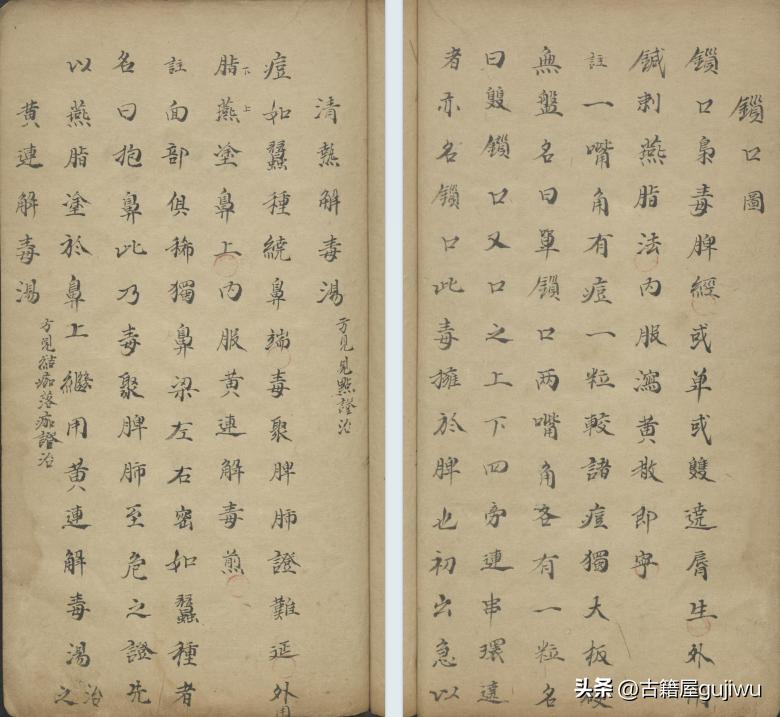 鎖口圖
鎖口梟毒脾經或单或雙遶脣生外
鍼刺燕脂法內服瀉黄散即寧
註一嘴角有痘一粒較諸痘獨大板
無盤名曰單鎖口两嘴角各有一粒名
曰雙鎖口又口之上下四旁連串環遶
者亦名鎖口此毒擁於脾也初出急以
清熱解毒湯方見見點證治
痘如蠶種繞鼻端毒聚脾肺證難延外用
脂下燕上塗鼻上內服黄連解毒煎
註面部俱稀獨鼻梁左右密如蠶種者
名曰抱鼻此乃毒聚脾肺至危之證先
以燕脂塗於鼻上繼用黄連解毒湯治之
黄連解毒湯方見結痂落痂證治
头条 @古籍屋gujiwu